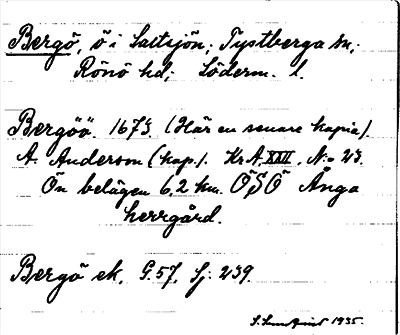 Bergö, ö i Saltsjön; Tystberga sn;
Rönö hd; Söderm. l.
Bergöö. 1675. (Här en senare kopia).
A. Anderson (kop.). Kr A. XXII. N:o 23.
Ön belägen 6,2 km. ÖSÖ Ånga
herrgård.
Bergö ek. G. 57. Sj: 239.
1935.